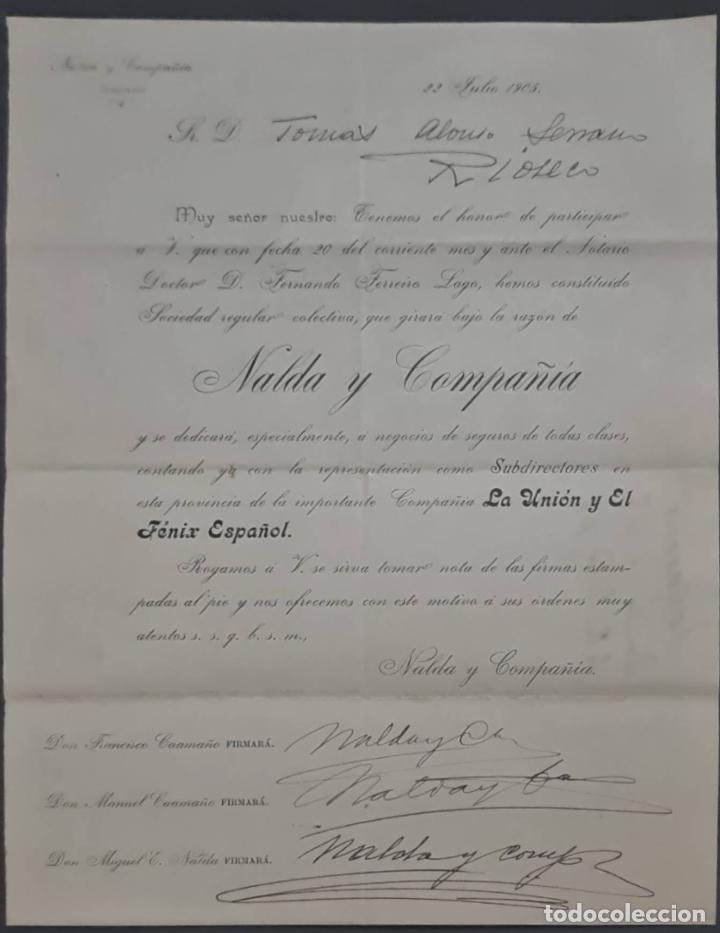 Nalda y Compañía
22 Julio 1905.
Sr. D. Tomás Alonso Serrano
Rioseco
Muy señor nuestro: Tenemos el honor de participar
a V. que con fecha 20 del corriente mes y ante el Notario
Doctor D. Fernando Ferreiro Lago, hemos constituído
Sociedad regular colectiva, que girará bajo la razón de
Nalda y Compañía
y se dedicará, especialmente, á negocios de seguros de todas clases,
contando ya con la representación como Subdirectores en
esta provincia de la importante Compañía La Unión y El
Fénix Español.
Rogamos á V. se sirva tomar nota de las firmas estam-
padas al pie y nos ofrecemos con este motivo á sus órdenes muy
atentos s. s. q. b. s. m.,
Nalda y Compañía.
Don Francisco Caamaño FIRMARÁ. Nalda y Ca
Don Manuel Caamaño FIRMARÁ. Nalda y Ca
Don Miguel E. Nalda FIRMARÁ. Nalda y Comp
todocoleccion.net